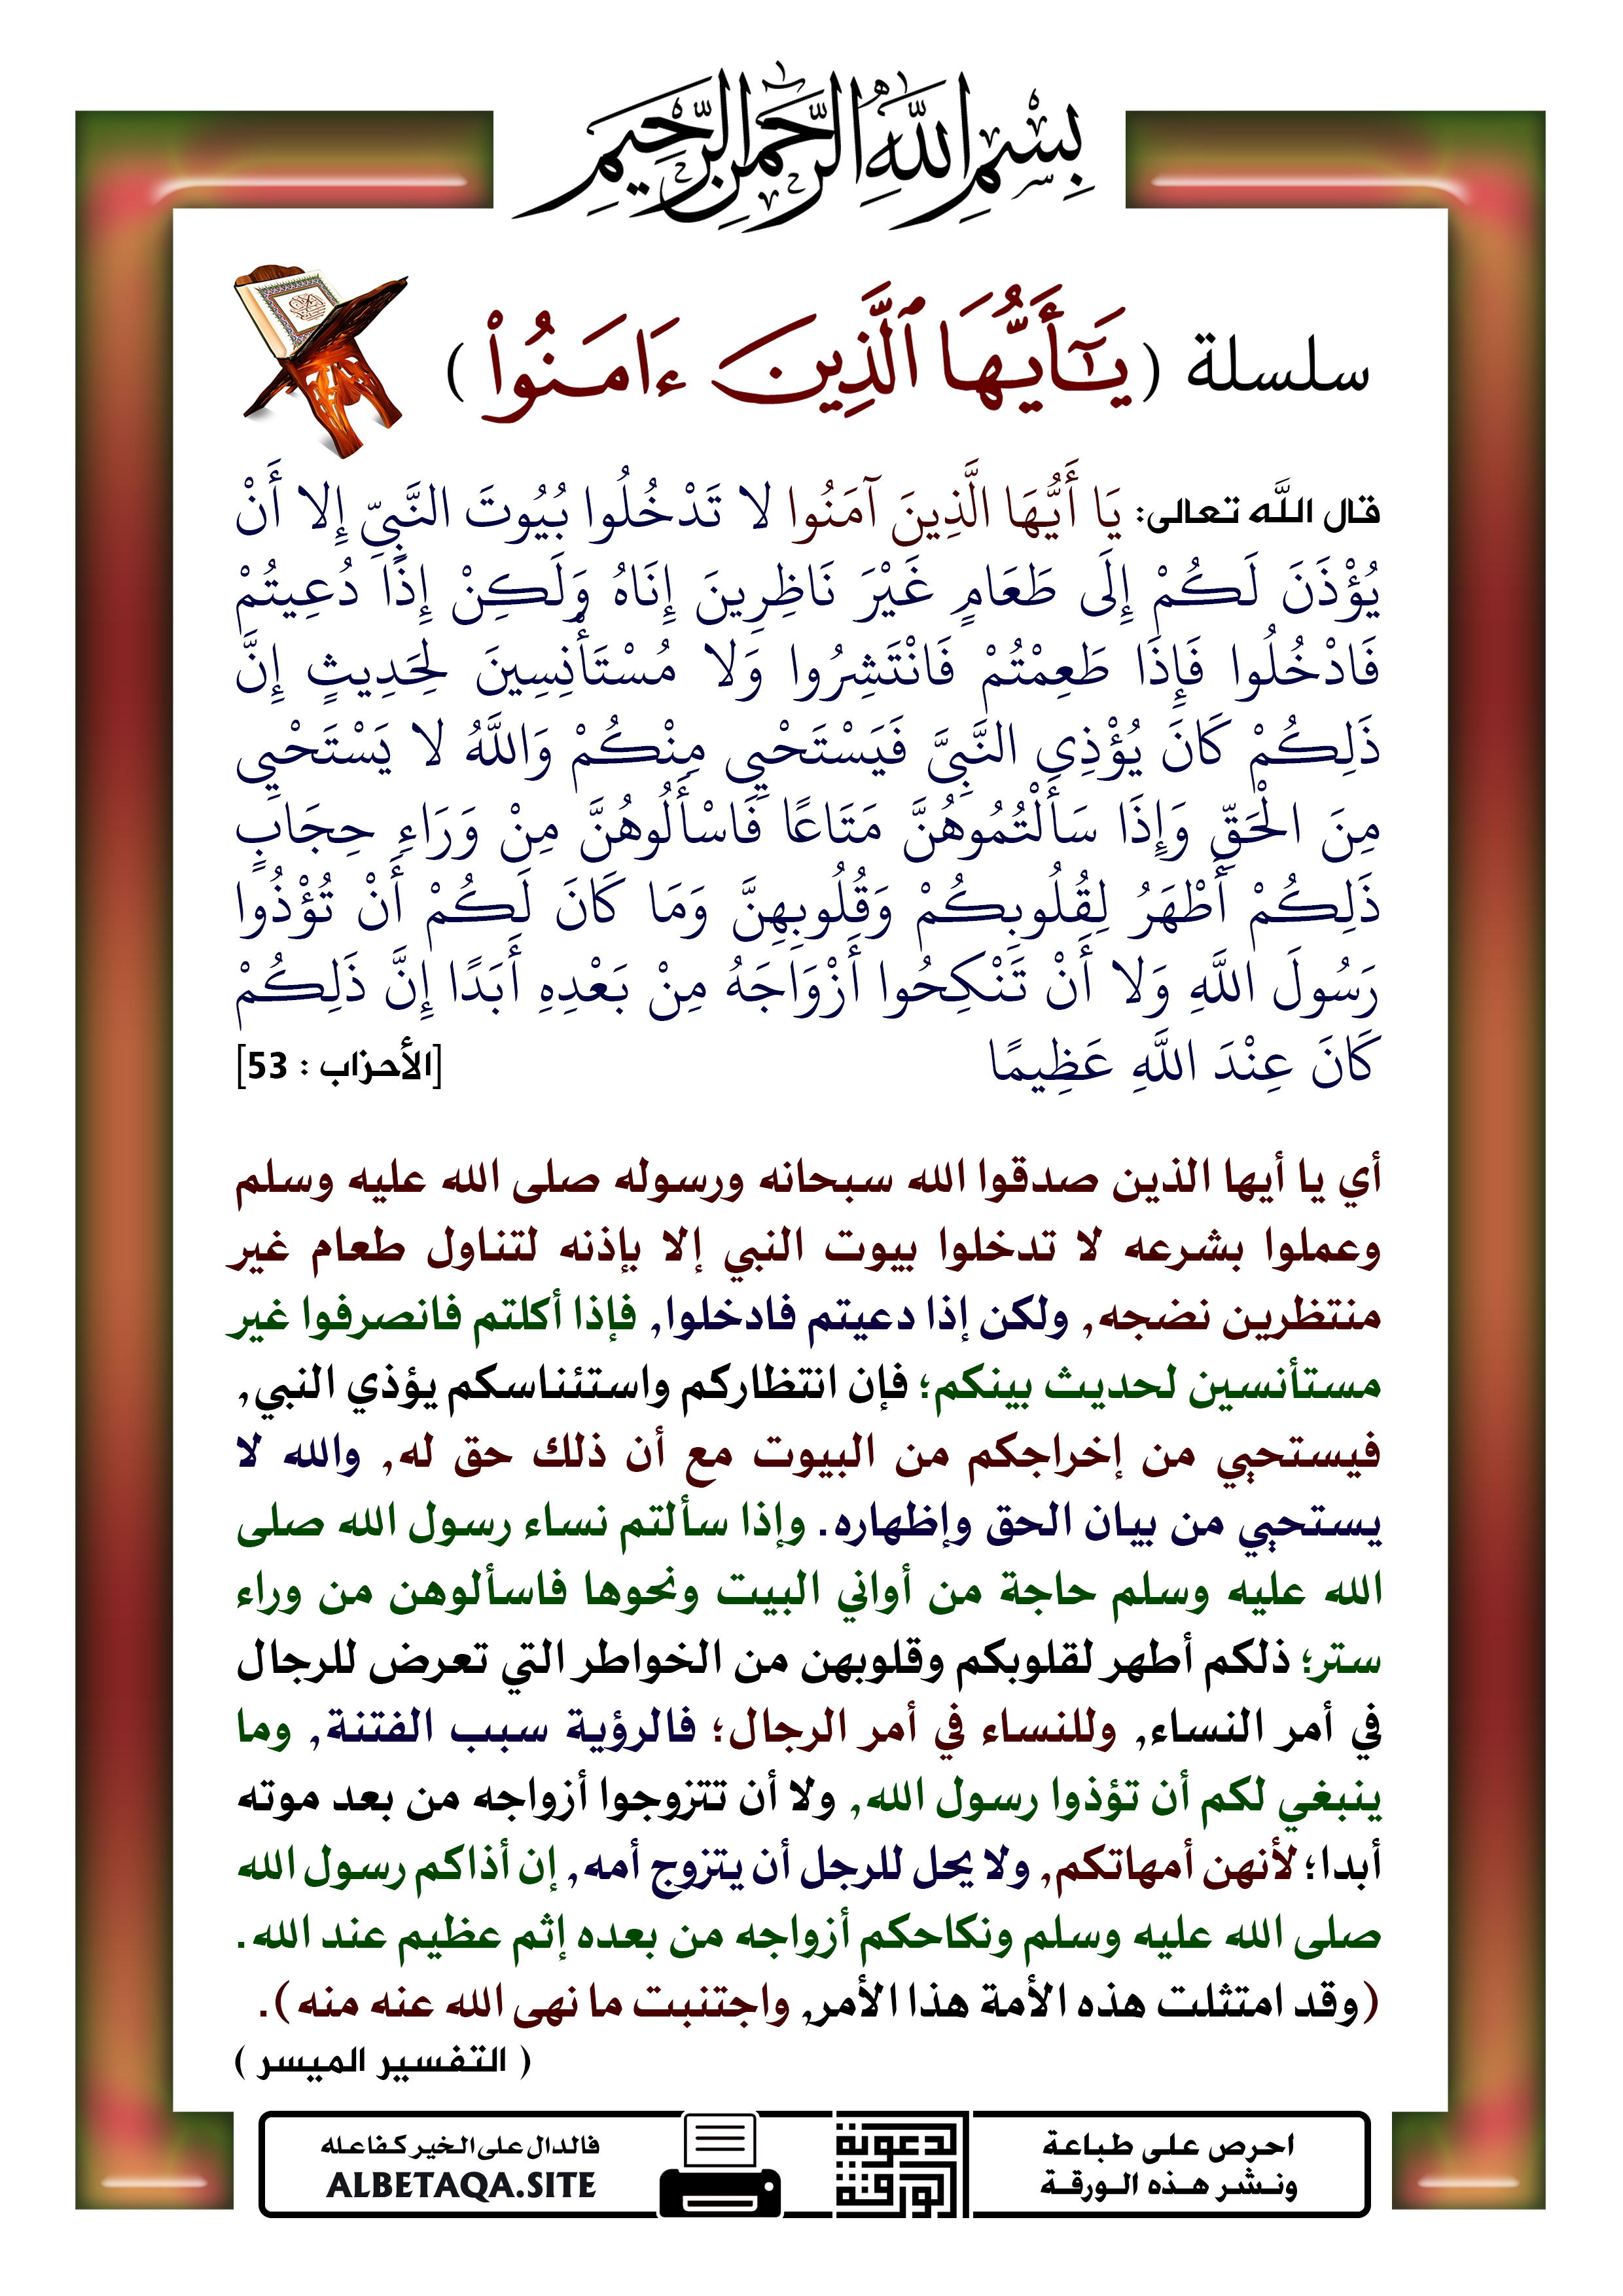 بِسْمِ اللَّهِ الرَّحْمَٰنِ الرَّحِيمِ
سلسلة (يَـٰٓأَيُّهَا ٱلَّذِينَ ءَامَنُوا۟)
قال اللَّه تعالى: يَا أَيُّهَا الَّذِينَ آمَنُوا لا تَدْخُلُوا بُيُوتَ النَّبِيِّ إِلا أَنْ
يُؤْذَنَ لَكُمْ إِلَى طَعَامٍ غَيْرَ نَاظِرِينَ إِنَاهُ وَلَكِنْ إِذَا دُعِيتُمْ
فَادْخُلُوا فَإِذَا طَعِمْتُمْ فَانْتَشِرُوا وَلا مُسْتَأْنِسِينَ لِحَدِيثٍ إِنَّ
ذَلِكُمْ كَانَ يُؤْذِي النَّبِيَّ فَيَسْتَحْيِي مِنْكُمْ وَاللَّهُ لا يَسْتَحْيِي
مِنَ الْحَقِّ وَإِذَا سَأَلْتُمُوهُنَّ مَتَاعًا فَاسْأَلُوهُنَّ مِنْ وَرَاءِ حِجَابٍ
ذَلِكُمْ أَطْهَرُ لِقُلُوبِكُمْ وَقُلُوبِهِنَّ وَمَا كَانَ لَكُمْ أَنْ تُؤْذُوا
رَسُولَ اللَّهِ وَلا أَنْ تَنْكِحُوا أَزْوَاجَهُ مِنْ بَعْدِهِ أَبَدًا إِنَّ ذَلِكُمْ
كَانَ عِنْدَ اللَّهِ عَظِيمًا [الأحزاب : 53]
أي يا أيها الذين صدقوا الله سبحانه ورسوله صلى الله عليه وسلم
وعملوا بشرعه لا تدخلوا بيوت النبي إلا بإذنه لتناول طعام غير
منتظرين نضجه, ولكن إذا دعيتم فادخلوا, فإذا أكلتم فانصرفوا غير
مستأنسين لحديث بينكم؛ فإن انتظاركم واستئناسكم يؤذي النبي,
فيستحيي من إخراجكم من البيوت مع أن ذلك حق له, والله لا
يستحيي من بيان الحق وإظهاره. وإذا سألتم نساء رسول الله صلى
الله عليه وسلم حاجة من أواني البيت ونحوها فاسألوهن من وراء
ستر؛ ذلكم أطهر لقلوبكم وقلوبهن من الخواطر التي تعرض للرجال
في أمر النساء, وللنساء في أمر الرجال؛ فالرؤية سبب الفتنة, وما
ينبغي لكم أن تؤذوا رسول الله, ولا أن تتزوجوا أزواجه من بعد موته
أبدا؛ لأنهن أمهاتكم, ولا يحل للرجل أن يتزوج أمه, إن أذاكم رسول الله
صلى الله عليه وسلم ونكاحكم أزواجه من بعده إثم عظيم عند الله.
(وقد امتثلت هذه الأمة هذا الأمر, واجتنبت ما نهى الله عنه منه).
( التفسير الميسر )
احرص على طباعة
ونشر هذه الورقة
الدعوية
الورقة
فالدال على الخير كفاعله
ALBETAQA.SITE